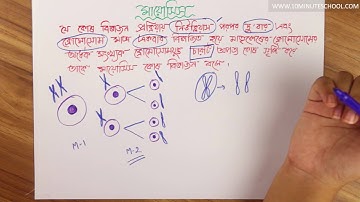 WWW.10MINUTESCHOOL.COM
মায়োসিস
যে কোষ বিভাজন প্রক্রিয়ায় নিউক্লিয়াস পরপর দু বার এবং
ক্রোমোসোম মাত্র একবার বিভাজিত হয়ে মাতৃকোষের ক্রোমোসোমের
অর্ধেক সংখ্যক ক্রোমোসোমযুক্ত চারটি অপত্য কোষ সৃষ্টি হয়
তাকে মায়োসিস কোষ বিভাজন বলে।
M-1
M-2